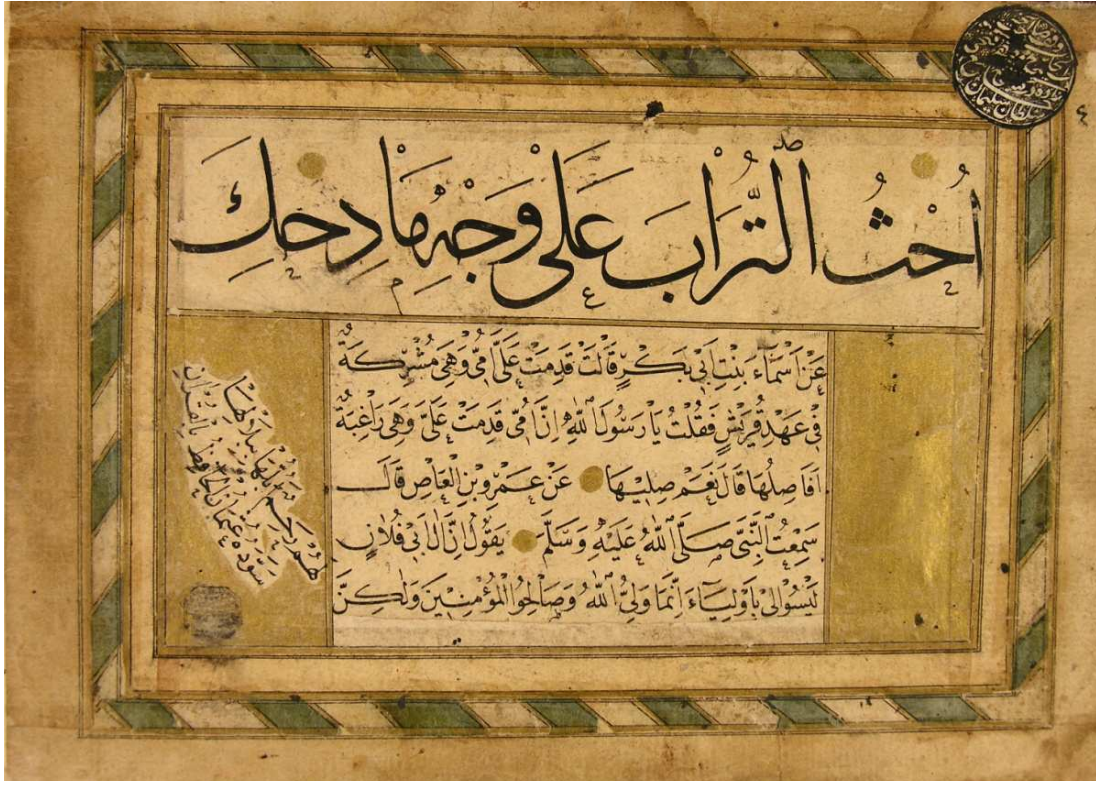 ٤
أُحْثُ التُّرَابَ عَلَى وَجْهِ مَادِحِكَ
عَنْ اَسْمَاءَ بِنْتِ اَبِى بَكْرٍ قَالَتْ قَدِمَتْ عَلَىَّ اُمِّى وَهِىَ مُشْرِكَةٌ
فِى عَهْدِ قُرَيْشٍ فَقُلْتُ يَا رَسُولَ اللّٰهِ اِنَّ اُمِّى قَدِمَتْ عَلَىَّ وَهِىَ رَاغِبَةٌ
اَفَاَصِلُهَا قَالَ نَعَمْ صِلِيهَا عَنْ عَمْرِو بْنِ الْعَاصِ قَالَ
سَمِعْتُ النَّبِىَّ صَلَّى اللّٰهُ عَلَيْهِ وَسَلَّمَ يَقُولُ اِنَّ اٰلَ اَبِى فُلَانٍ
لَيْسُوا لِى بِاَوْلِيَاءَ اِنَّمَا وَلِيِّ اللّٰهُ وَصَالِحُوا الْمُؤْمِنِينَ وَلٰكِنَّ
لَهُمْ رَحِمٌ ببلالها
سَوَّدَهُ عثمان